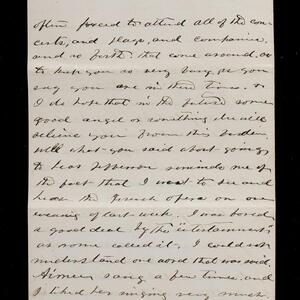 often forced to attend all of the con-
certs, and plays, and companies
and so forth that come around, as
to keep you so very busy, as you
say you are in these times. —
I do hope that in the future some
good angel or something else will
relieve you from this burden.
Well what you said about going
to hear Jefferson reminds me of
the fact that I went to see and
hear the French opera on one
evening of last week. I was bored
a good deal by the "entertainment"
as some called it. I could not
understand one word that was said.
Aimee sang a few times, and
I liked her singing very much